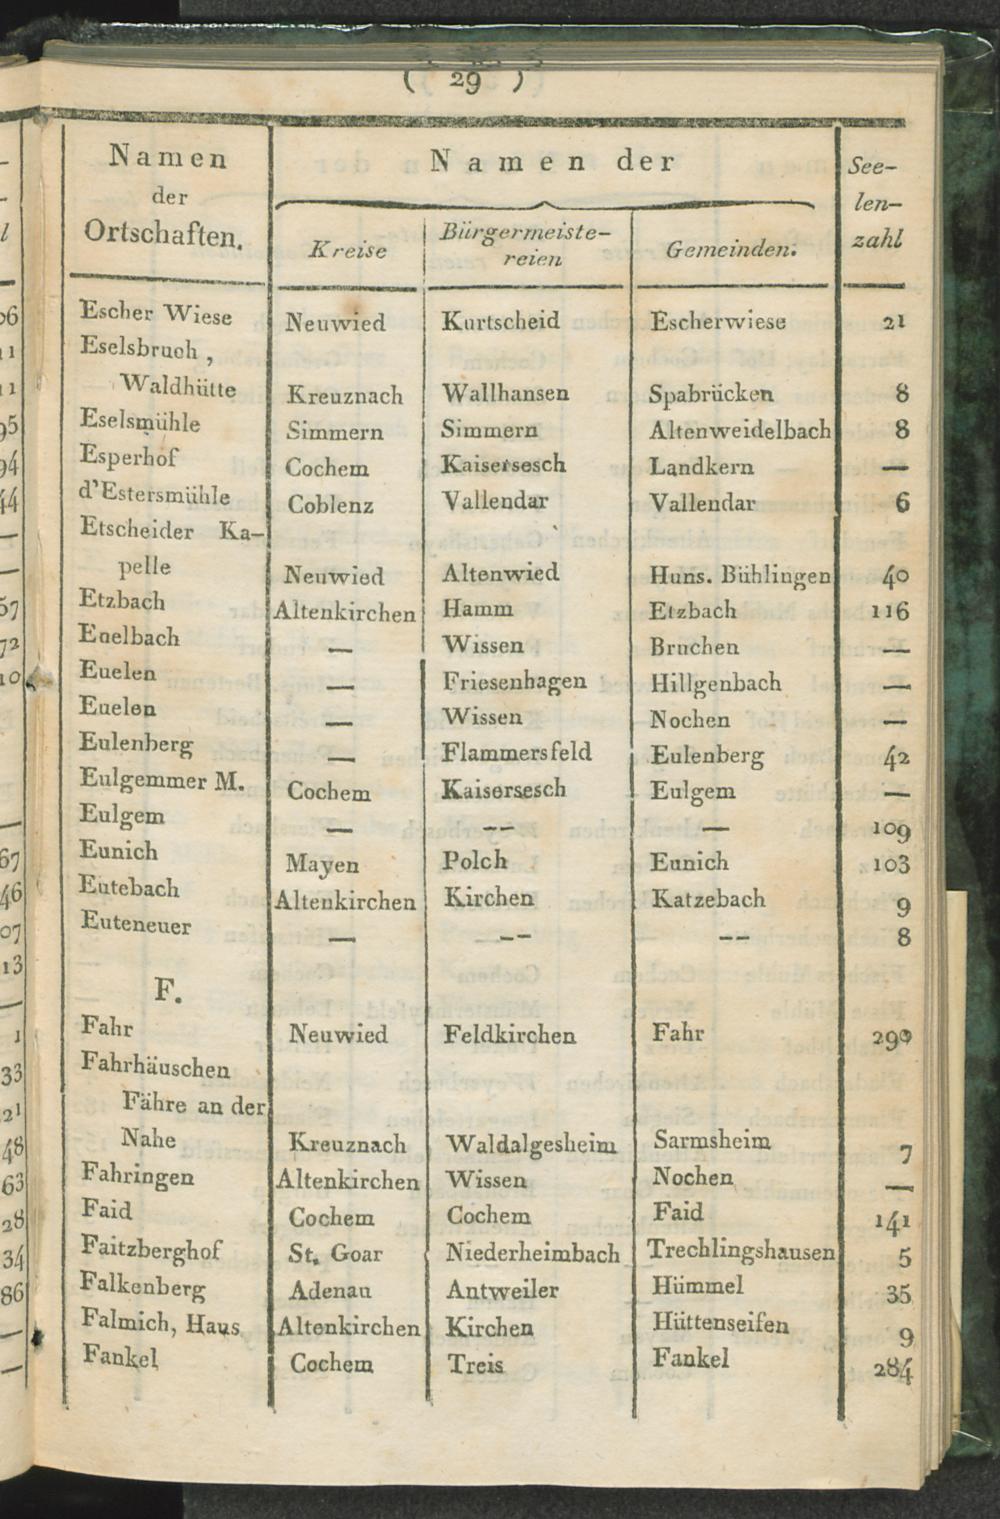 ( 29 )
Namen der Ortschaften. | Namen der Kreise | Bürgermeiste-reien | Gemeinden. | See-len-zahl
Escher Wiese | Neuwied | Kurtscheid | Escherwiese | 21
Eselsbruch ,
Waldhütte | Kreuznach | Wallhansen | Spabrücken | 8
Eselsmühle | Simmern | Simmern | Altenweidelbach | 8
Esperhof | Cochem | Kaisersesch | Landkern | —
d'Estersmühle | Coblenz | Vallendar | Vallendar | 6
Etscheider Ka-
pelle | Neuwied | Altenwied | Huns. Bühlingen | 40
Etzbach | Altenkirchen | Hamm | Etzbach | 116
Euelbach | — | Wissen | Bruchen | —
Euelen | — | Friesenhagen | Hillgenbach | —
Euelen | — | Wissen | Nochen | —
Eulenberg | — | Flammersfeld | Eulenberg | 42
Eulgemmer M. | Cochem | Kaisersesch | Eulgem | —
Eulgem | — | —— | — | 109
Eunich | Mayen | Polch | Eunich | 103
Eutebach | Altenkirchen | Kirchen | Katzebach | 9
Euteneuer | — | —— | —— | 8
F.
Fahr | Neuwied | Feldkirchen | Fahr | 290
Fahrhäuschen
Fähre an der
Nahe | Kreuznach | Waldalgesheim | Sarmsheim | 7
Fahringen | Altenkirchen | Wissen | Nochen | —
Faid | Cochem | Cochem | Faid | 141
Faitzberghof | St. Goar | Niederheimbach | Trechlingshausen | 5
Falkenberg | Adenau | Antweiler | Hümmel | 35
Falmich, Haus | Altenkirchen | Kirchen | Hüttenseifen | 9
Fankel | Cochem | Treis | Fankel | 284